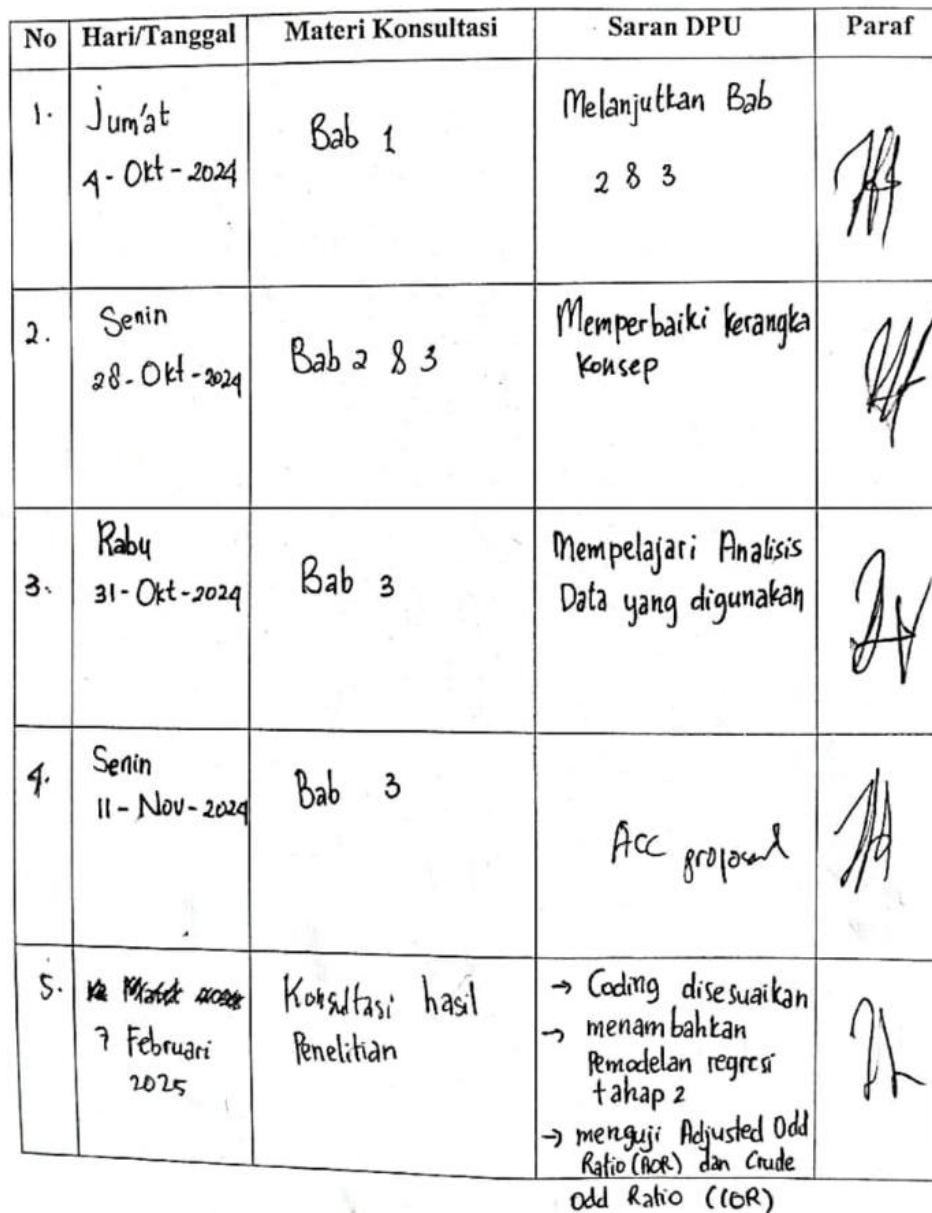 No Hari/Tanggal Materi Konsultasi Saran DPU Paraf
1. Jum'at
4 - Okt - 2024
Bab 1
Melanjutkan Bab
2 & 3
2. Senin
28 - Okt - 2024
Bab 2 & 3
Memperbaiki kerangka
konsep
3. Rabu
31 - Okt - 2024
Bab 3
Mempelajari Analisis
Data yang digunakan
4. Senin
11 - Nov - 2024
Bab 3
Acc proposal
5.
7 Februari
2025
Konsultasi hasil
Penelitian
→ Coding disesuaikan
→ menambahkan
Pemodelan regresi
tahap 2
→ menguji Adjusted Odd
Ratio (AOR) dan Crude
Odd Ratio (COR)